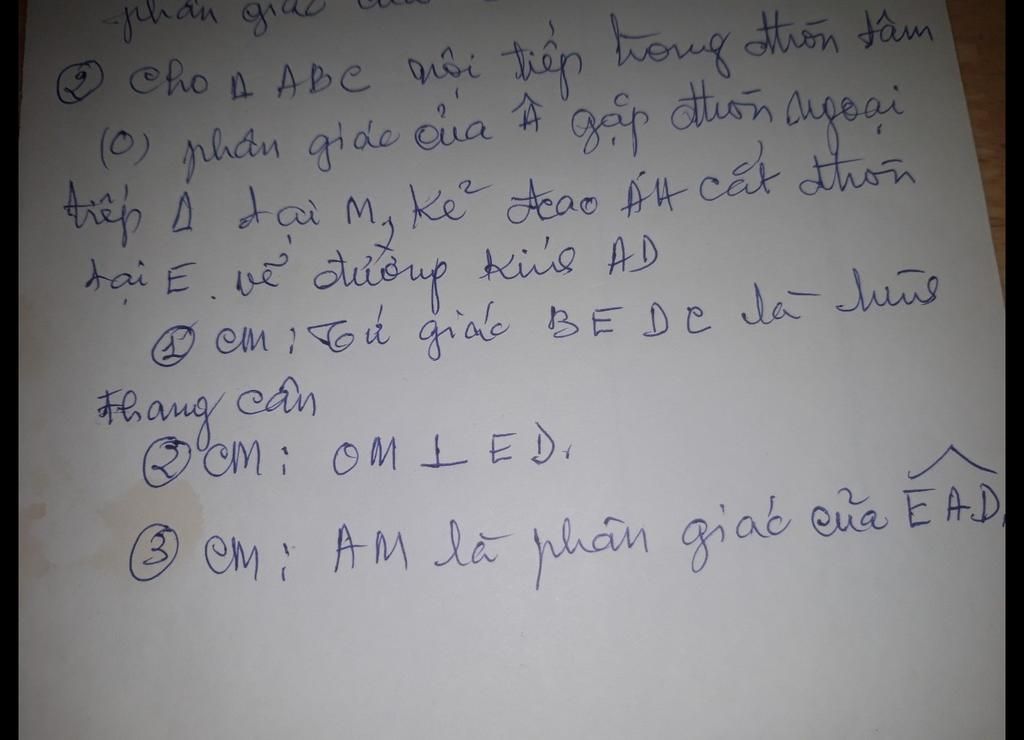 phân giác của
② Cho Δ ABC nội tiếp trong đtròn tâm
(O) phân giác của Â gặp đtròn ngoại
tiếp Δ tại M, Kẻ đcao AH cắt đtròn
tại E. vẽ đường kính AD
① CM: Tứ giác BEDC là hình
thang cân
② CM: OM ⊥ ED.
③ CM: AM là phân giác của EAD.